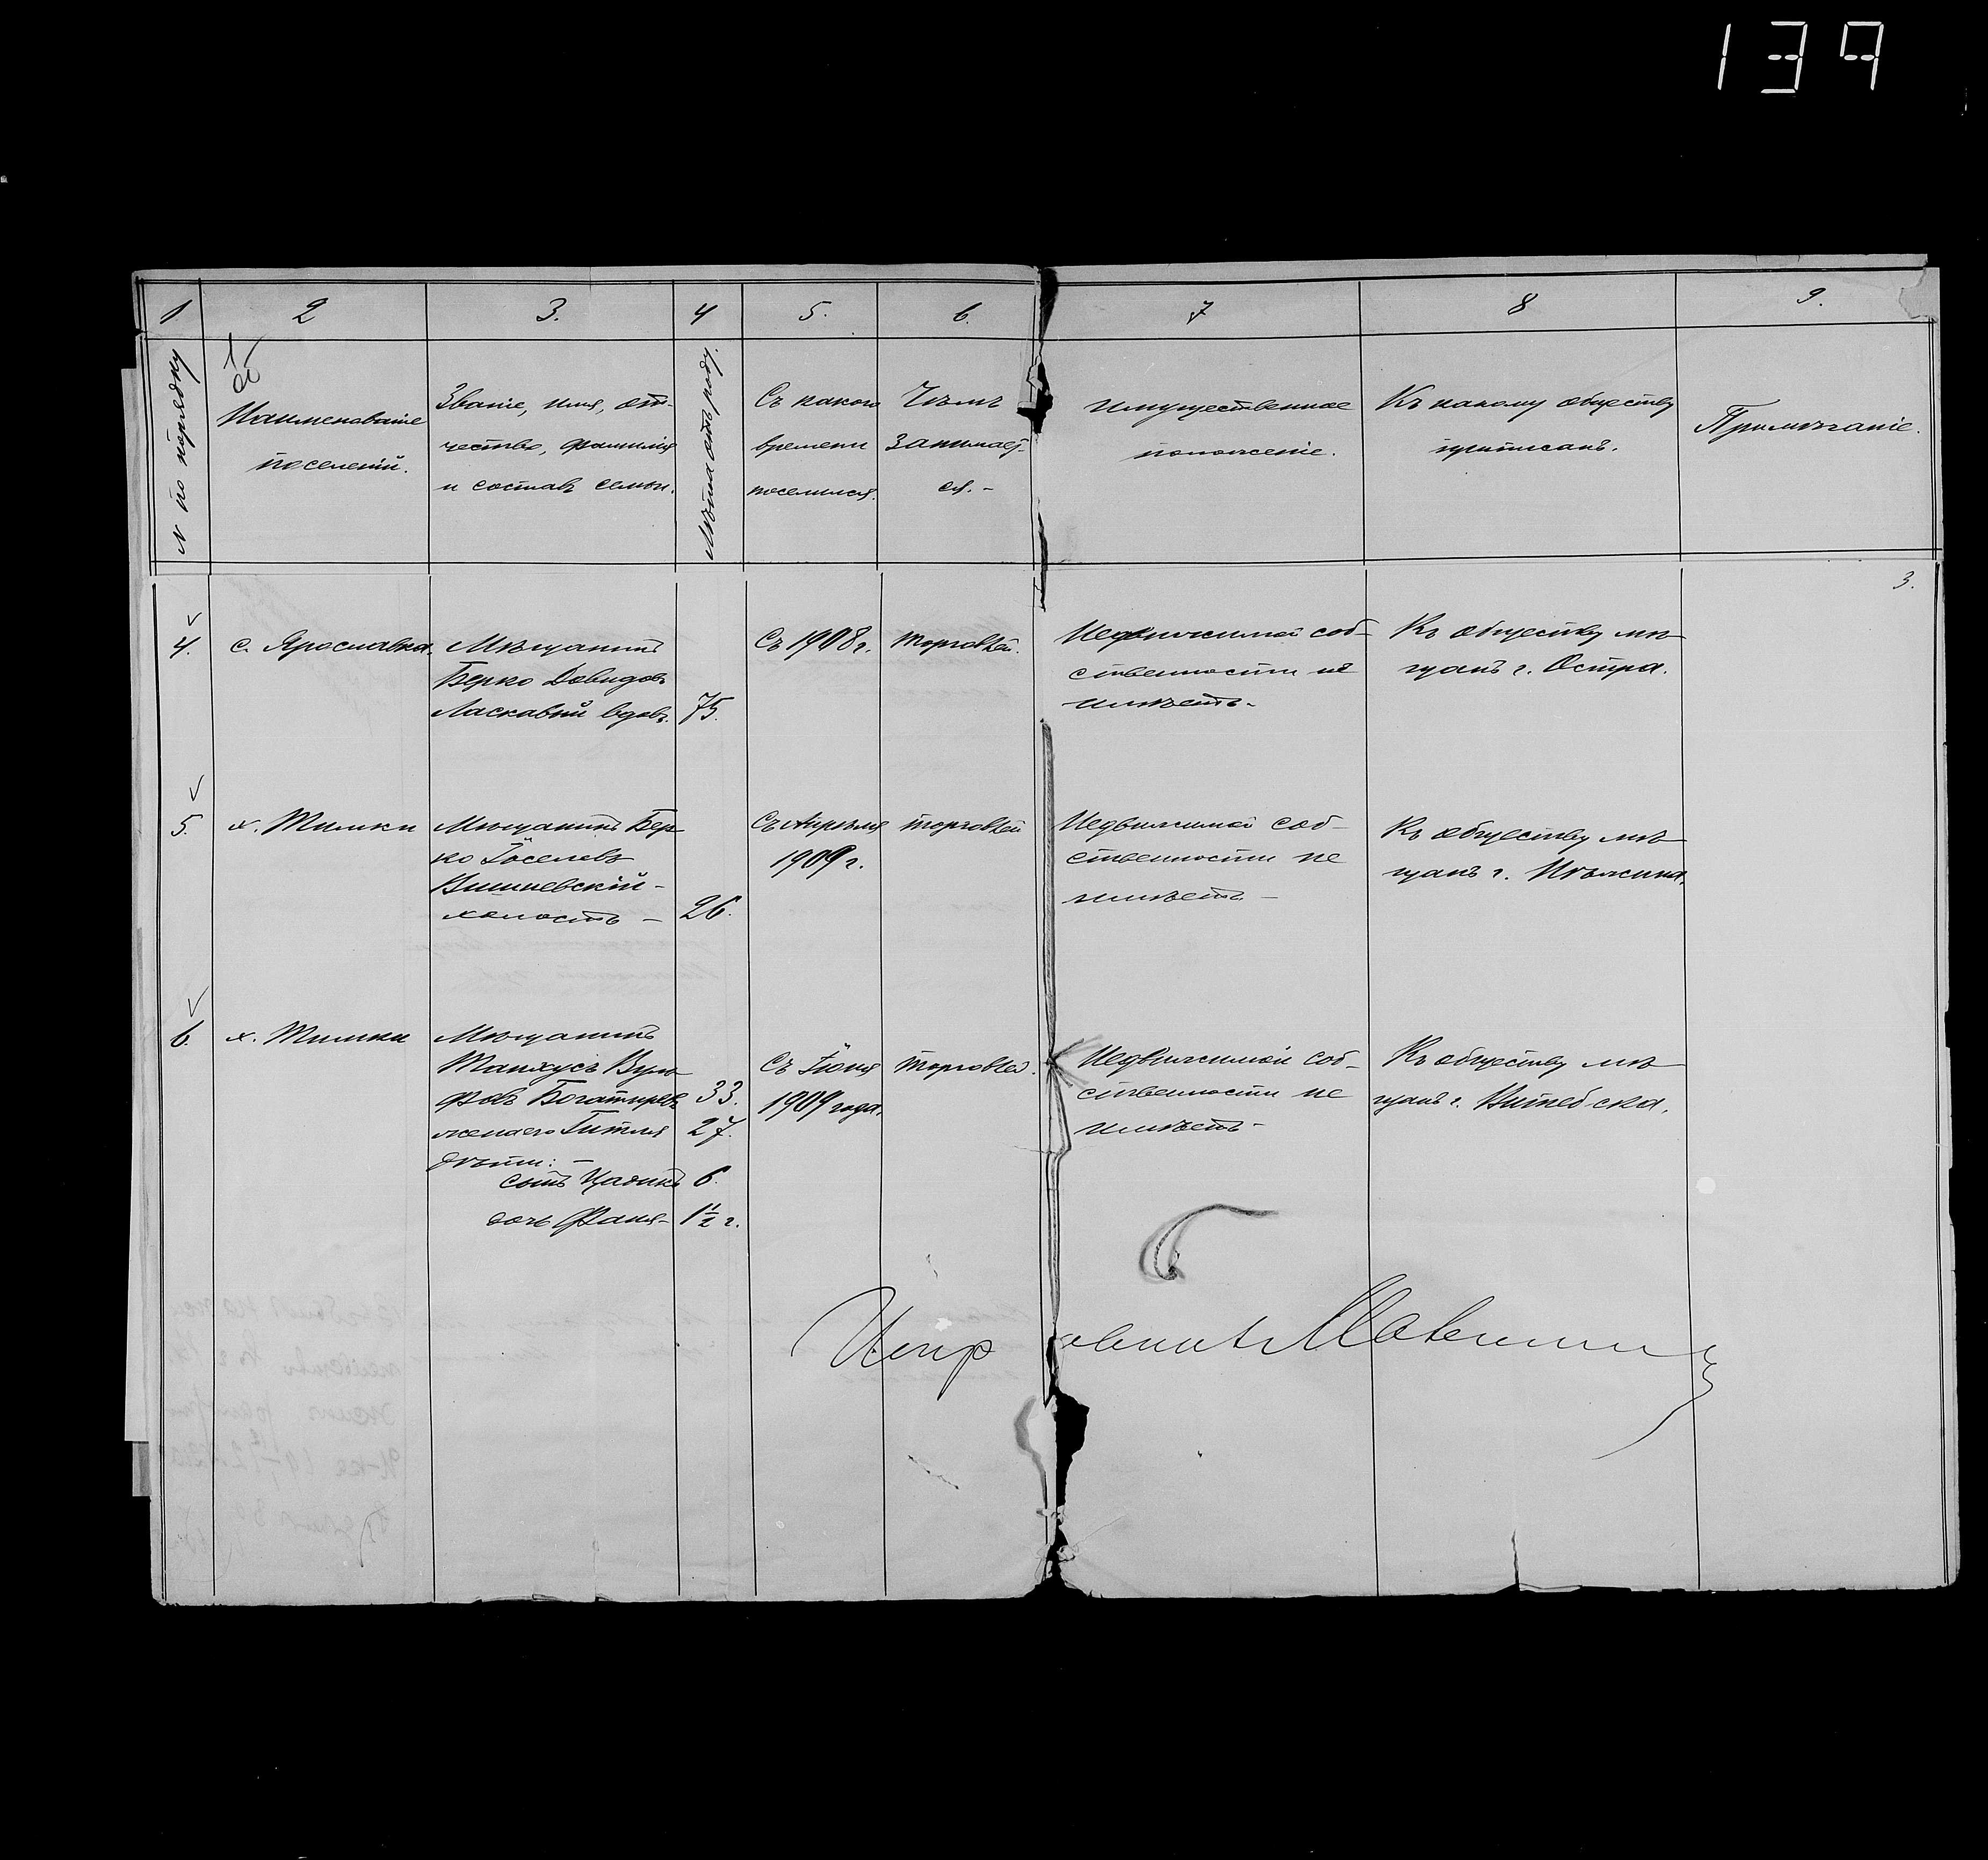 139
1 2 3. 4 5. 6. 7 8 9.
№ по порядку
Наименованіе
поселеній.
Званіе, имя, от-
чество, фамилія
и составъ семьи.
Лѣта отъ роду.
Съ какого
времени
поселился.
Чѣмъ
занимает-
ся. -
Имущественное
положеніе.
Къ какому обществу
приписанъ.
Примѣчаніе.
3.
4.
с. Ярославка.
Мѣщанинъ
Берко Довидовъ
Ласкавый вдовъ.
75.
Съ 1908 г.
торговлей.
Недвижимой соб-
ственности не
имѣетъ.-
Къ обществу мѣ-
щанъ г. Остра.
5.
х. Тимки
Мѣщанинъ Бер-
ко Іоселевъ
Вишневскій -
холостъ -
26.
Съ Апрѣля
1909 г.
торговлей
Недвижимой соб-
ственности не
имѣетъ -
Къ обществу мѣ-
щанъ г. Нѣжина.
6.
х. Тимки
Мѣщанинъ
Танхусъ Вуль-
фовъ Богатыревъ 33.
жена его Гитля 27.
дѣти: -
сынъ Цадикъ 6.
дочь Фаня - 1½ г.
Съ Іюня
1909 года.
торговлей.
Недвижимой соб-
ственности не
имѣетъ -
Къ обществу мѣ-
щанъ г. Витебска.
Исправникъ